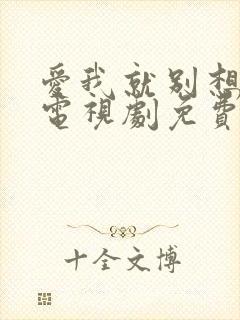 愛我就別想
電視劇免費
十全文博